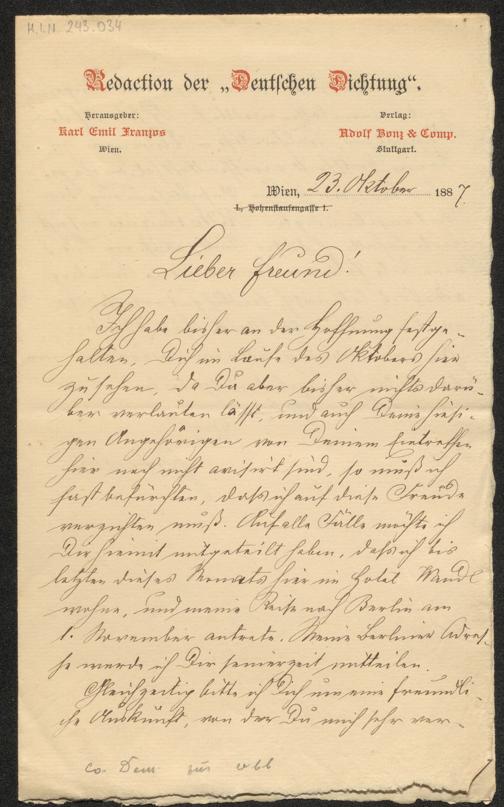 H.I.N. 243.034
Redaction der „Deutschen Dichtung“.
Herausgeber:
Karl Emil Franzos
Wien.
Verlag:
Adolf Bonz & Comp.
Stuttgart.
Wien, 23. Oktober 1887.
I., Hohenstaufengasse 1.
Lieber Freund!
Ich habe bisher an der Hoffnung festge-
halten, Dich im Laufe des Oktobers hier
zu sehen, da Du aber bisher nichts darü-
ber verlauten läßt, und auch Deine hiesi-
gen Angehörigen von Deinem Eintreffen
hier noch nicht avisirt sind, so muß ich
fast befürchten, dass ich auf diese Freude
verzichten muß. Auf alle Fälle möchte ich
Dir hiemit mitgeteilt haben, dass ich bis
letzten dieses Monats hier im Hotel Wandl
wohne, und meine Reise nach Berlin am
1. November antrete. Meine Berliner Adres-
se werde ich Dir seinerzeit mitteilen.
Gleichzeitig bitte ich Dich um eine freundli-
che Auskunft, von der Du mich sehr ver-